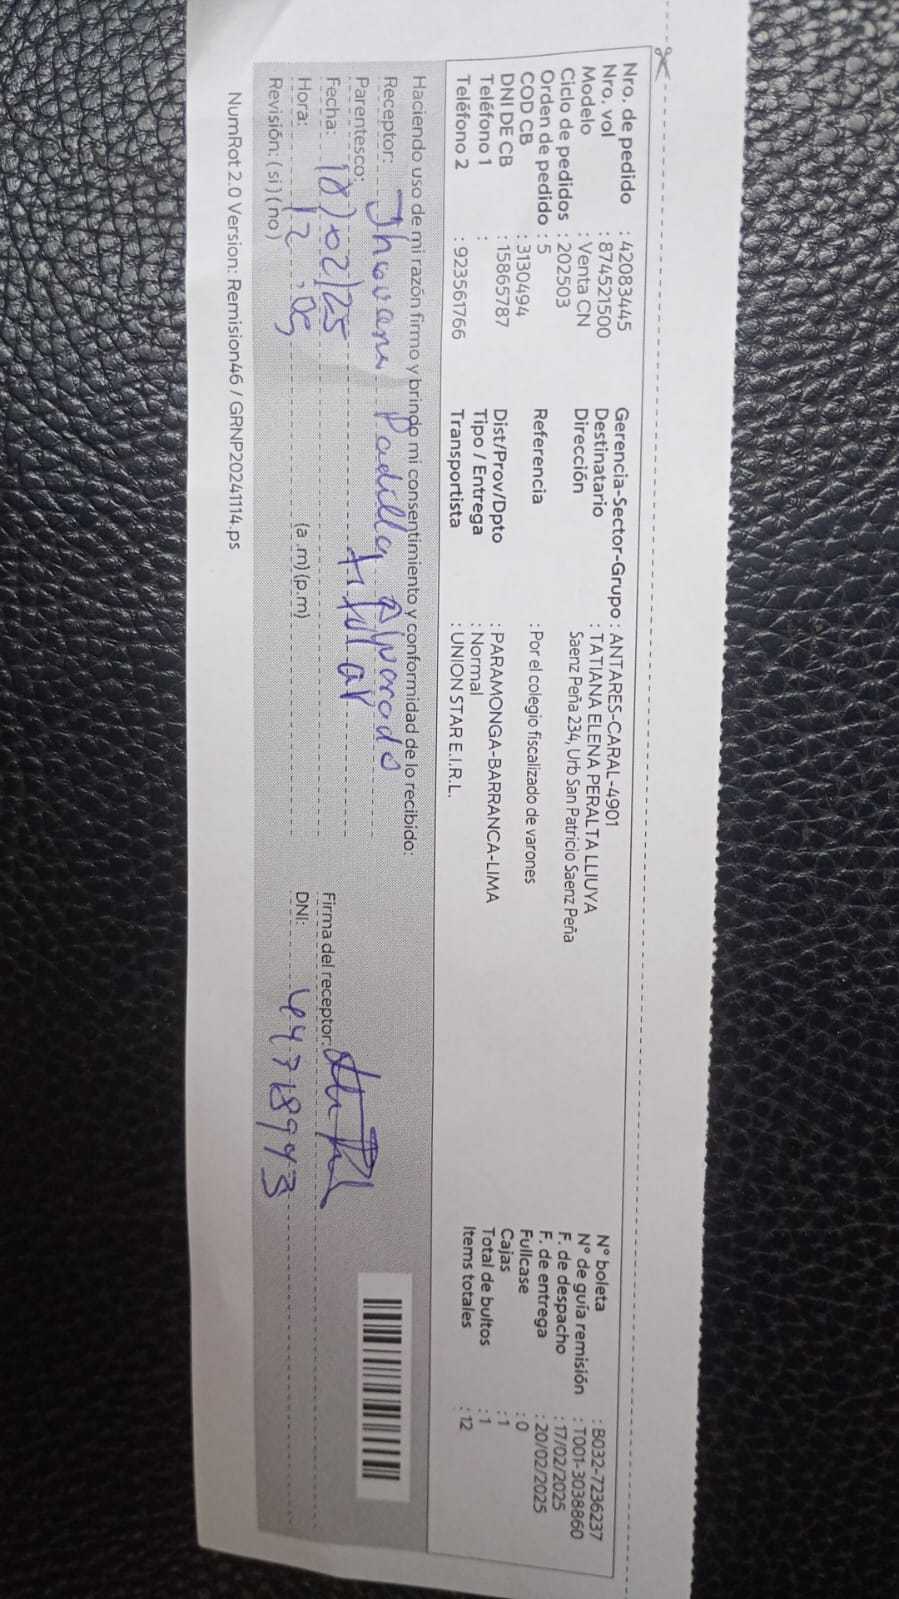 Nro. de pedido : 42083445
Nro. vol : 874521500
Modelo : Venta CN
Ciclo de pedidos : 202503
Orden de pedido : 5
COD CB : 3130494
DNI DE CB : 15865787
Teléfono 1 :
Teléfono 2 : 923561766
Gerencia-Sector-Grupo : ANTARES-CARAL-4901
Destinatario : TATIANA ELENA PERALTA LLIUYA
Dirección Saenz Peña 234, Urb San Patricio Saenz Peña
Referencia : Por el colegio fiscalizado de varones
Dist/Prov/Dpto : PARAMONGA-BARRANCA-LIMA
Tipo / Entrega : Normal
Transportista : UNION STAR E.I.R.L.
N° boleta : B032-7236237
N° de guía remisión : T001-3038860
F. de despacho : 17/02/2025
F. de entrega : 20/02/2025
Fullcase : 0
Cajas : 1
Total de bultos : 1
Items totales : 12
Haciendo uso de mi razón firmo y brindo mi consentimiento y conformidad de lo recibido:
Receptor: Padilla Alvarado
Parentesco: titular
Fecha: 18/02/25
Hora: 12:05 (a .m) (p.m)
Revisión: ( si ) ( no )
Firma del receptor:
DNI: 44718943
NumRot 2.0 Version: Remision46 / GRNP20241114.ps